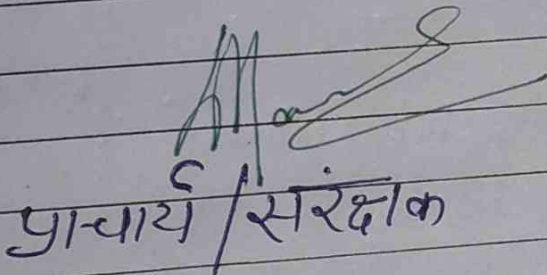 प्राचार्य / सरंक्षक